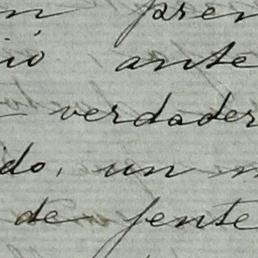 n pren
ió ante
verdader
do, un n
de fente